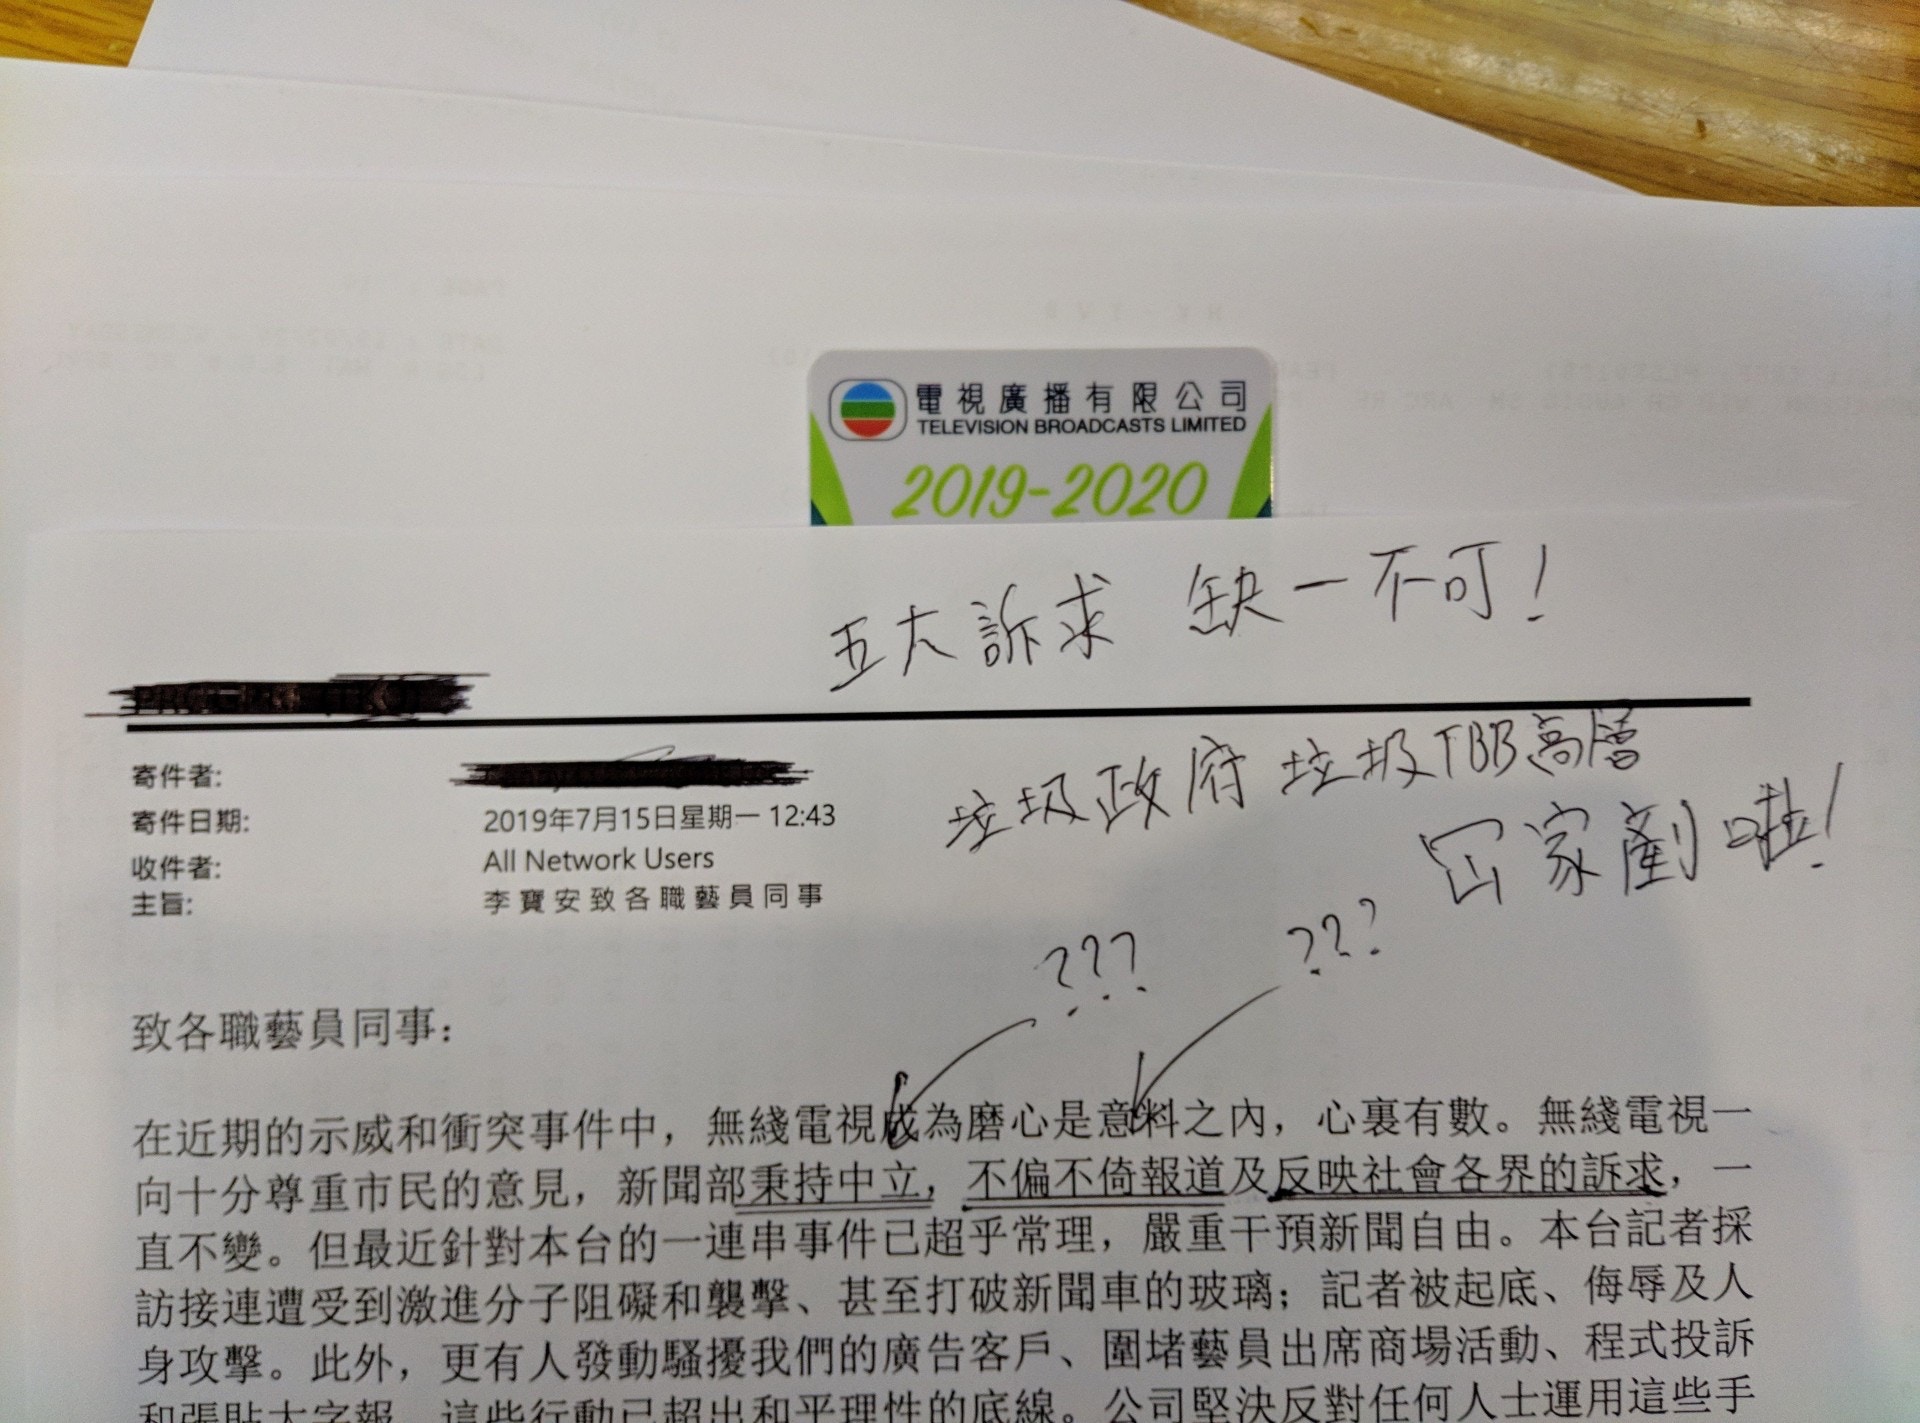 電視廣播有限公司
TELEVISION BROADCASTS LIMITED
2019-2020
五大訴求 缺一不可!
寄件者:
寄件日期: 2019年7月15日星期一 12:43
收件者: All Network Users
主旨: 李寶安致各職藝員同事
垃圾政府 垃圾TBB高層
冚家剷啦!
??? ???
致各職藝員同事:
在近期的示威和衝突事件中，無綫電視成為磨心是意料之內，心裏有數。無綫電視一
向十分尊重市民的意見，新聞部秉持中立，不偏不倚報道及反映社會各界的訴求，一
直不變。但最近針對本台的一連串事件已超乎常理，嚴重干預新聞自由。本台記者採
訪接連遭受到激進分子阻礙和襲擊、甚至打破新聞車的玻璃；記者被起底、侮辱及人
身攻擊。此外，更有人發動騷擾我們的廣告客戶、圍堵藝員出席商場活動、程式投訴
和張貼大字報，這些行動已超出和平理性的底線。公司堅決反對任何人士運用這些手